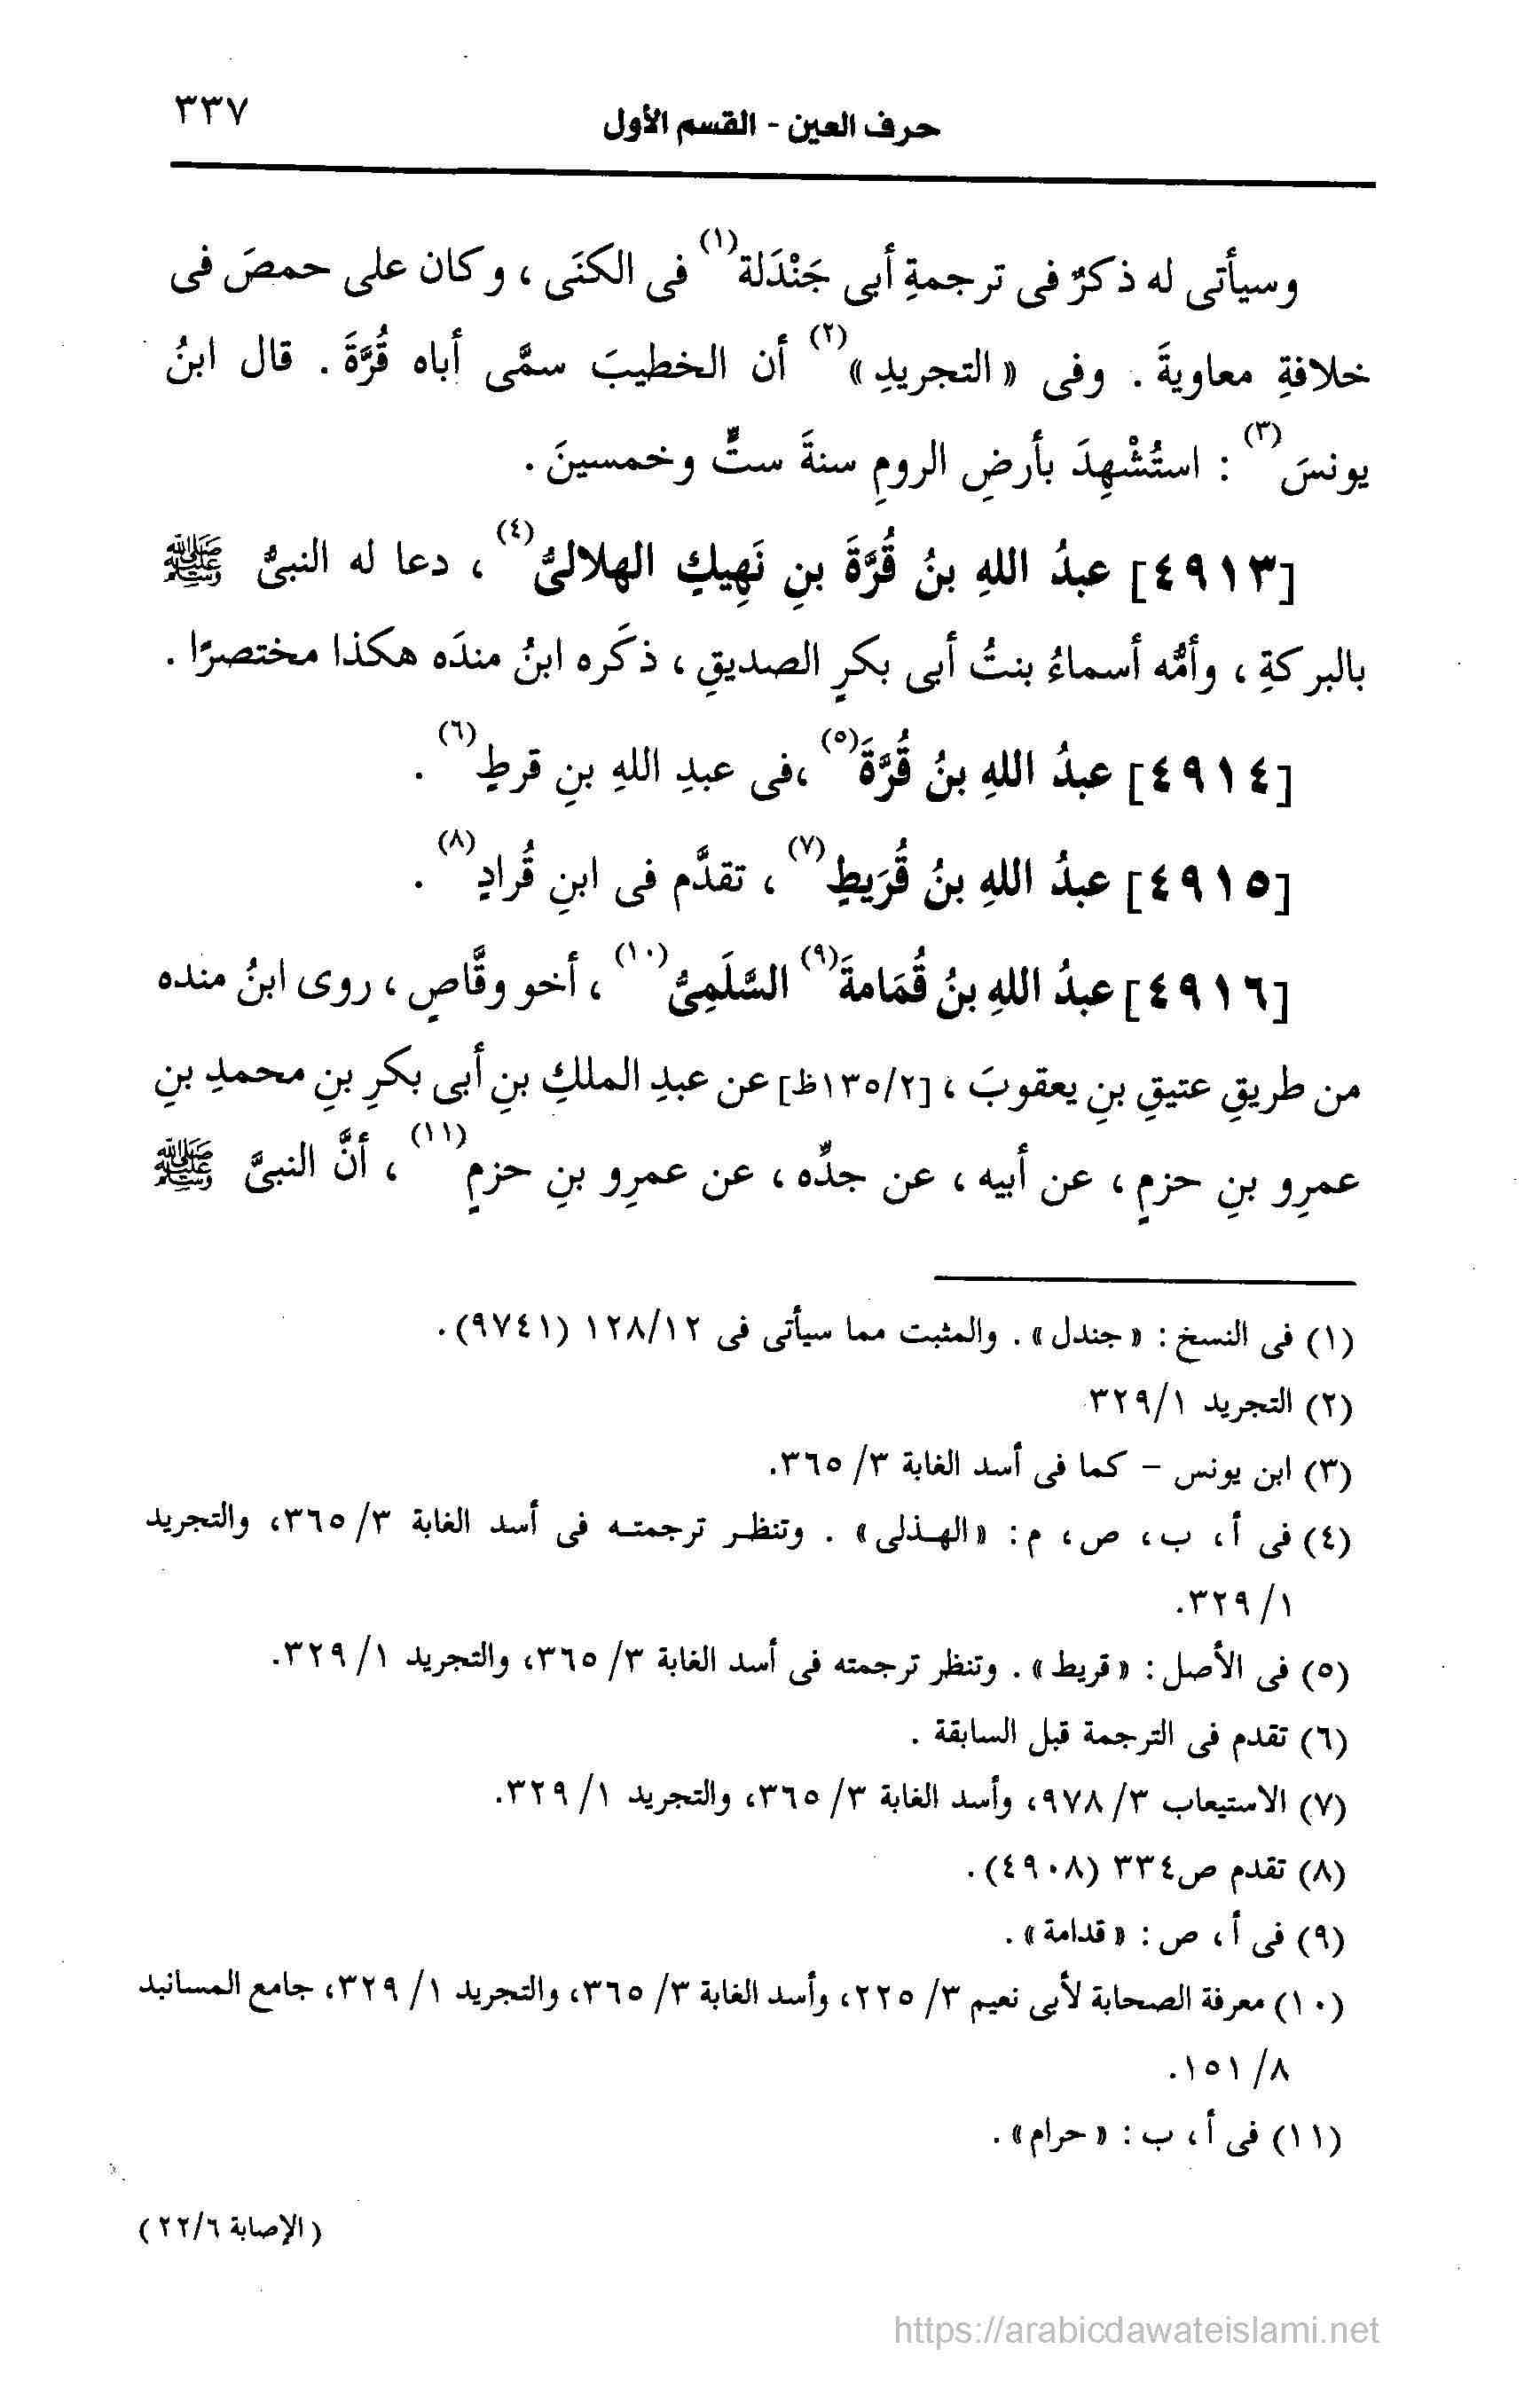 حرف العين - القسم الأول
٣٣٧
وسيأتى له ذكرٌ فى ترجمةِ أبى جَنْدَلة(١) فى الكنَى ، وكان على حمصَ فى
خلافةِ معاويةَ . وفى « التجريدِ »(٢) أن الخطيبَ سمَّى أباه قُرَّةَ . قال ابنُ
يونسَ(٣) : استُشْهِدَ بأرضِ الرومِ سنةَ ستٍّ وخمسينَ .
[٤٩١٣] عبدُ اللهِ بنُ قُرَّةَ بنِ نَهِيكٍ الهلالىُّ(٤) ، دعا له النبىُّ ﷺ
بالبركةِ ، وأمُّه أسماءُ بنتُ أبى بكرٍ الصديقِ ، ذكَره ابنُ مندَه هكذا مختصرًا .
[٤٩١٤] عبدُ اللهِ بنُ قُرَّةَ(٥) ،فى عبدِ اللهِ بنِ قرطٍ(٦) .
[٤٩١٥] عبدُ اللهِ بنُ قُرَيطٍ(٧) ، تقدَّم فى ابنِ قُرادٍ(٨) .
[٤٩١٦] عبدُ اللهِ بنُ قُمَامةَ(٩) السَّلَمِىُّ(١٠) ، أخو وقَّاصٍ ، روى ابنُ منده
من طريقِ عتيقِ بنِ يعقوبَ ، [١٣٥/٢ظ] عن عبدِ الملكِ بنِ أبى بكرِ بنِ محمدِ بنِ
عمرِو بنِ حزمٍ ، عن أبيه ، عن جدِّه ، عن عمرِو بنِ حزمٍ(١١) ، أنَّ النبىَّ ﷺ
(١) فى النسخ : « جندل » . والمثبت مما سيأتى فى ١٢٨/١٢ (٩٧٤١) .
(٢) التجريد ٣٢٩/١
(٣) ابن يونس - كما فى أسد الغابة ٣/ ٣٦٥.
(٤) فى أ ، ب ، ص ، م : « الهذلى » . وتنظر ترجمته فى أسد الغابة ٣/ ٣٦٥، والتجريد
١/ ٣٢٩.
(٥) فى الأصل : « قريط » . وتنظر ترجمته فى أسد الغابة ٣/ ٣٦٥، والتجريد ١/ ٣٢٩.
(٦) تقدم فى الترجمة قبل السابقة .
(٧) الاستيعاب ٣/ ٩٧٨، وأسد الغابة ٣/ ٣٦٥، والتجريد ١/ ٣٢٩.
(٨) تقدم ص٣٣٤ (٤٩٠٨) .
(٩) فى أ ، ص : « قدامة » .
(١٠) معرفة الصحابة لأبى نعيم ٣/ ٢٢٥، وأسد الغابة ٣/ ٣٦٥، والتجريد ١/ ٣٢٩، جامع المسانيد
٨/ ١٥١.
(١١) فى أ ، ب : « حرام » .
( الإصابة ٢٢/٦ )
https://arabicdawateislami.net